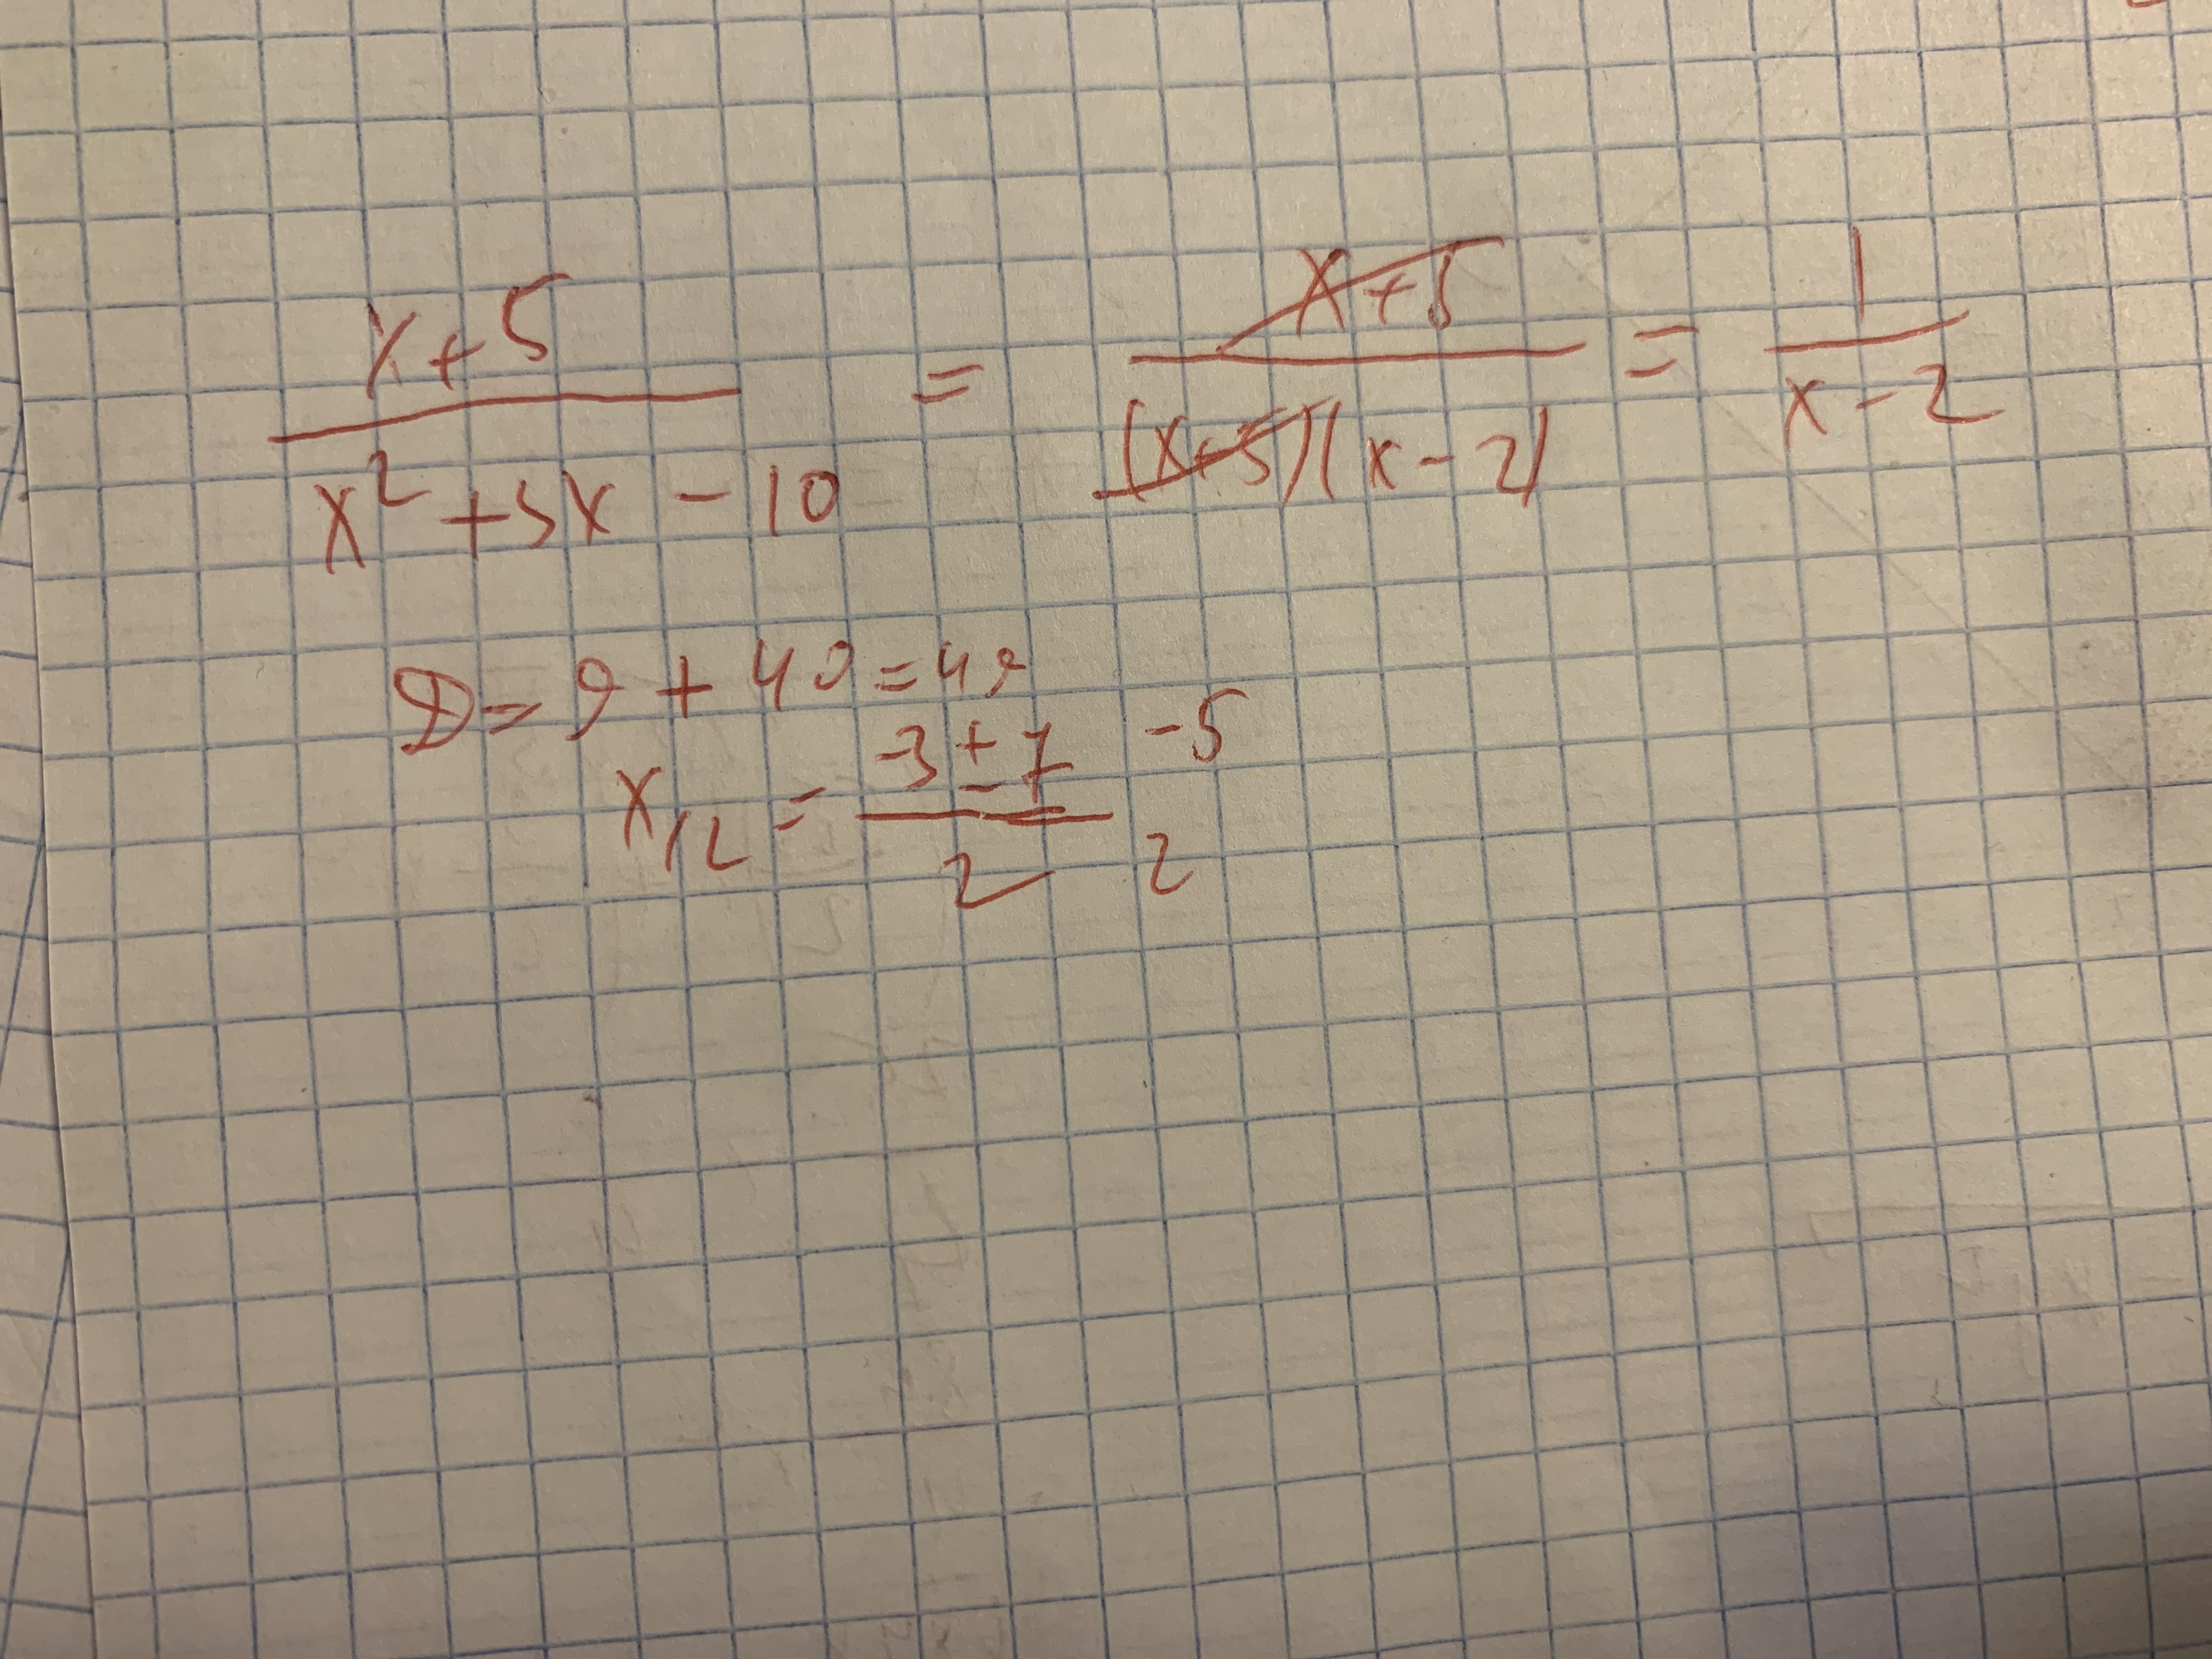 x+5 / x² + 3x - 10 = x+5 / (x+5)(x-2) = 1 / x-2
D = 9 + 40 = 49
x₁₂ = -3 ± 7 / 2   -5   2